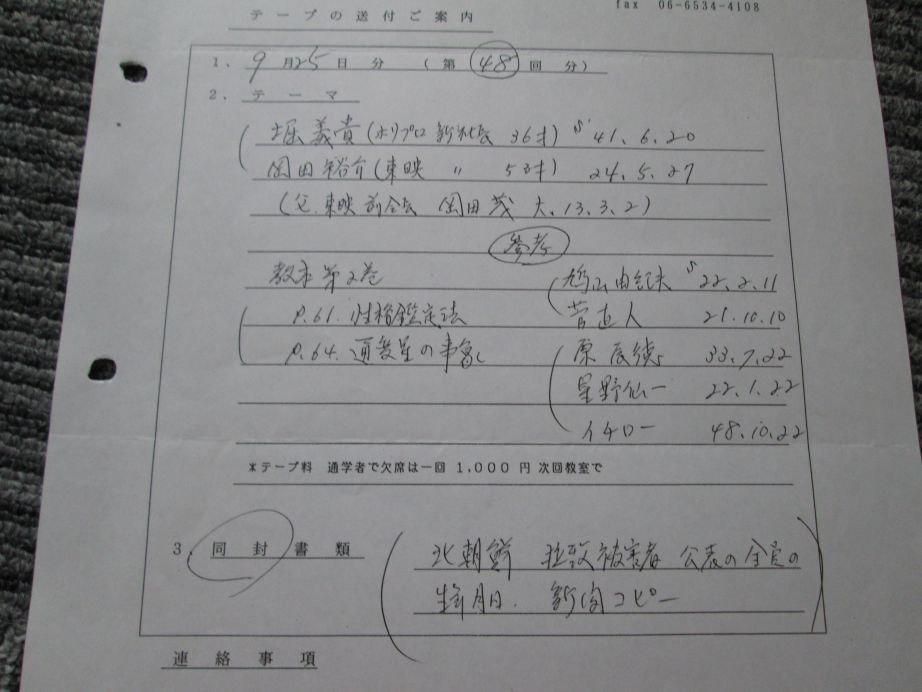 fax 06-6534-4108
テープの送付ご案内
1、9月25日分 (第48回分)
2、テーマ
堀義貴(ホリプロ新社長 36才) S' 41.6.20
岡田裕介(東映 〃 53才) 24.5.27
(父.東映前会長 岡田茂 大.13.3.2)
参考
教本第2巻
鳩山由紀夫 S 22.2.11
P.61.性格鑑定法
菅直人 21.10.10
P.64.通変星の事象
原辰徳 33.7.22
星野仙一 22.1.22
イチロー 48.10.22
*テープ料 通学者で欠席は一回 1,000円 次回教室で
3、同封書類
北朝鮮 拉致被害者 公表の全員の
生年月日. 新聞コピー
連絡事項